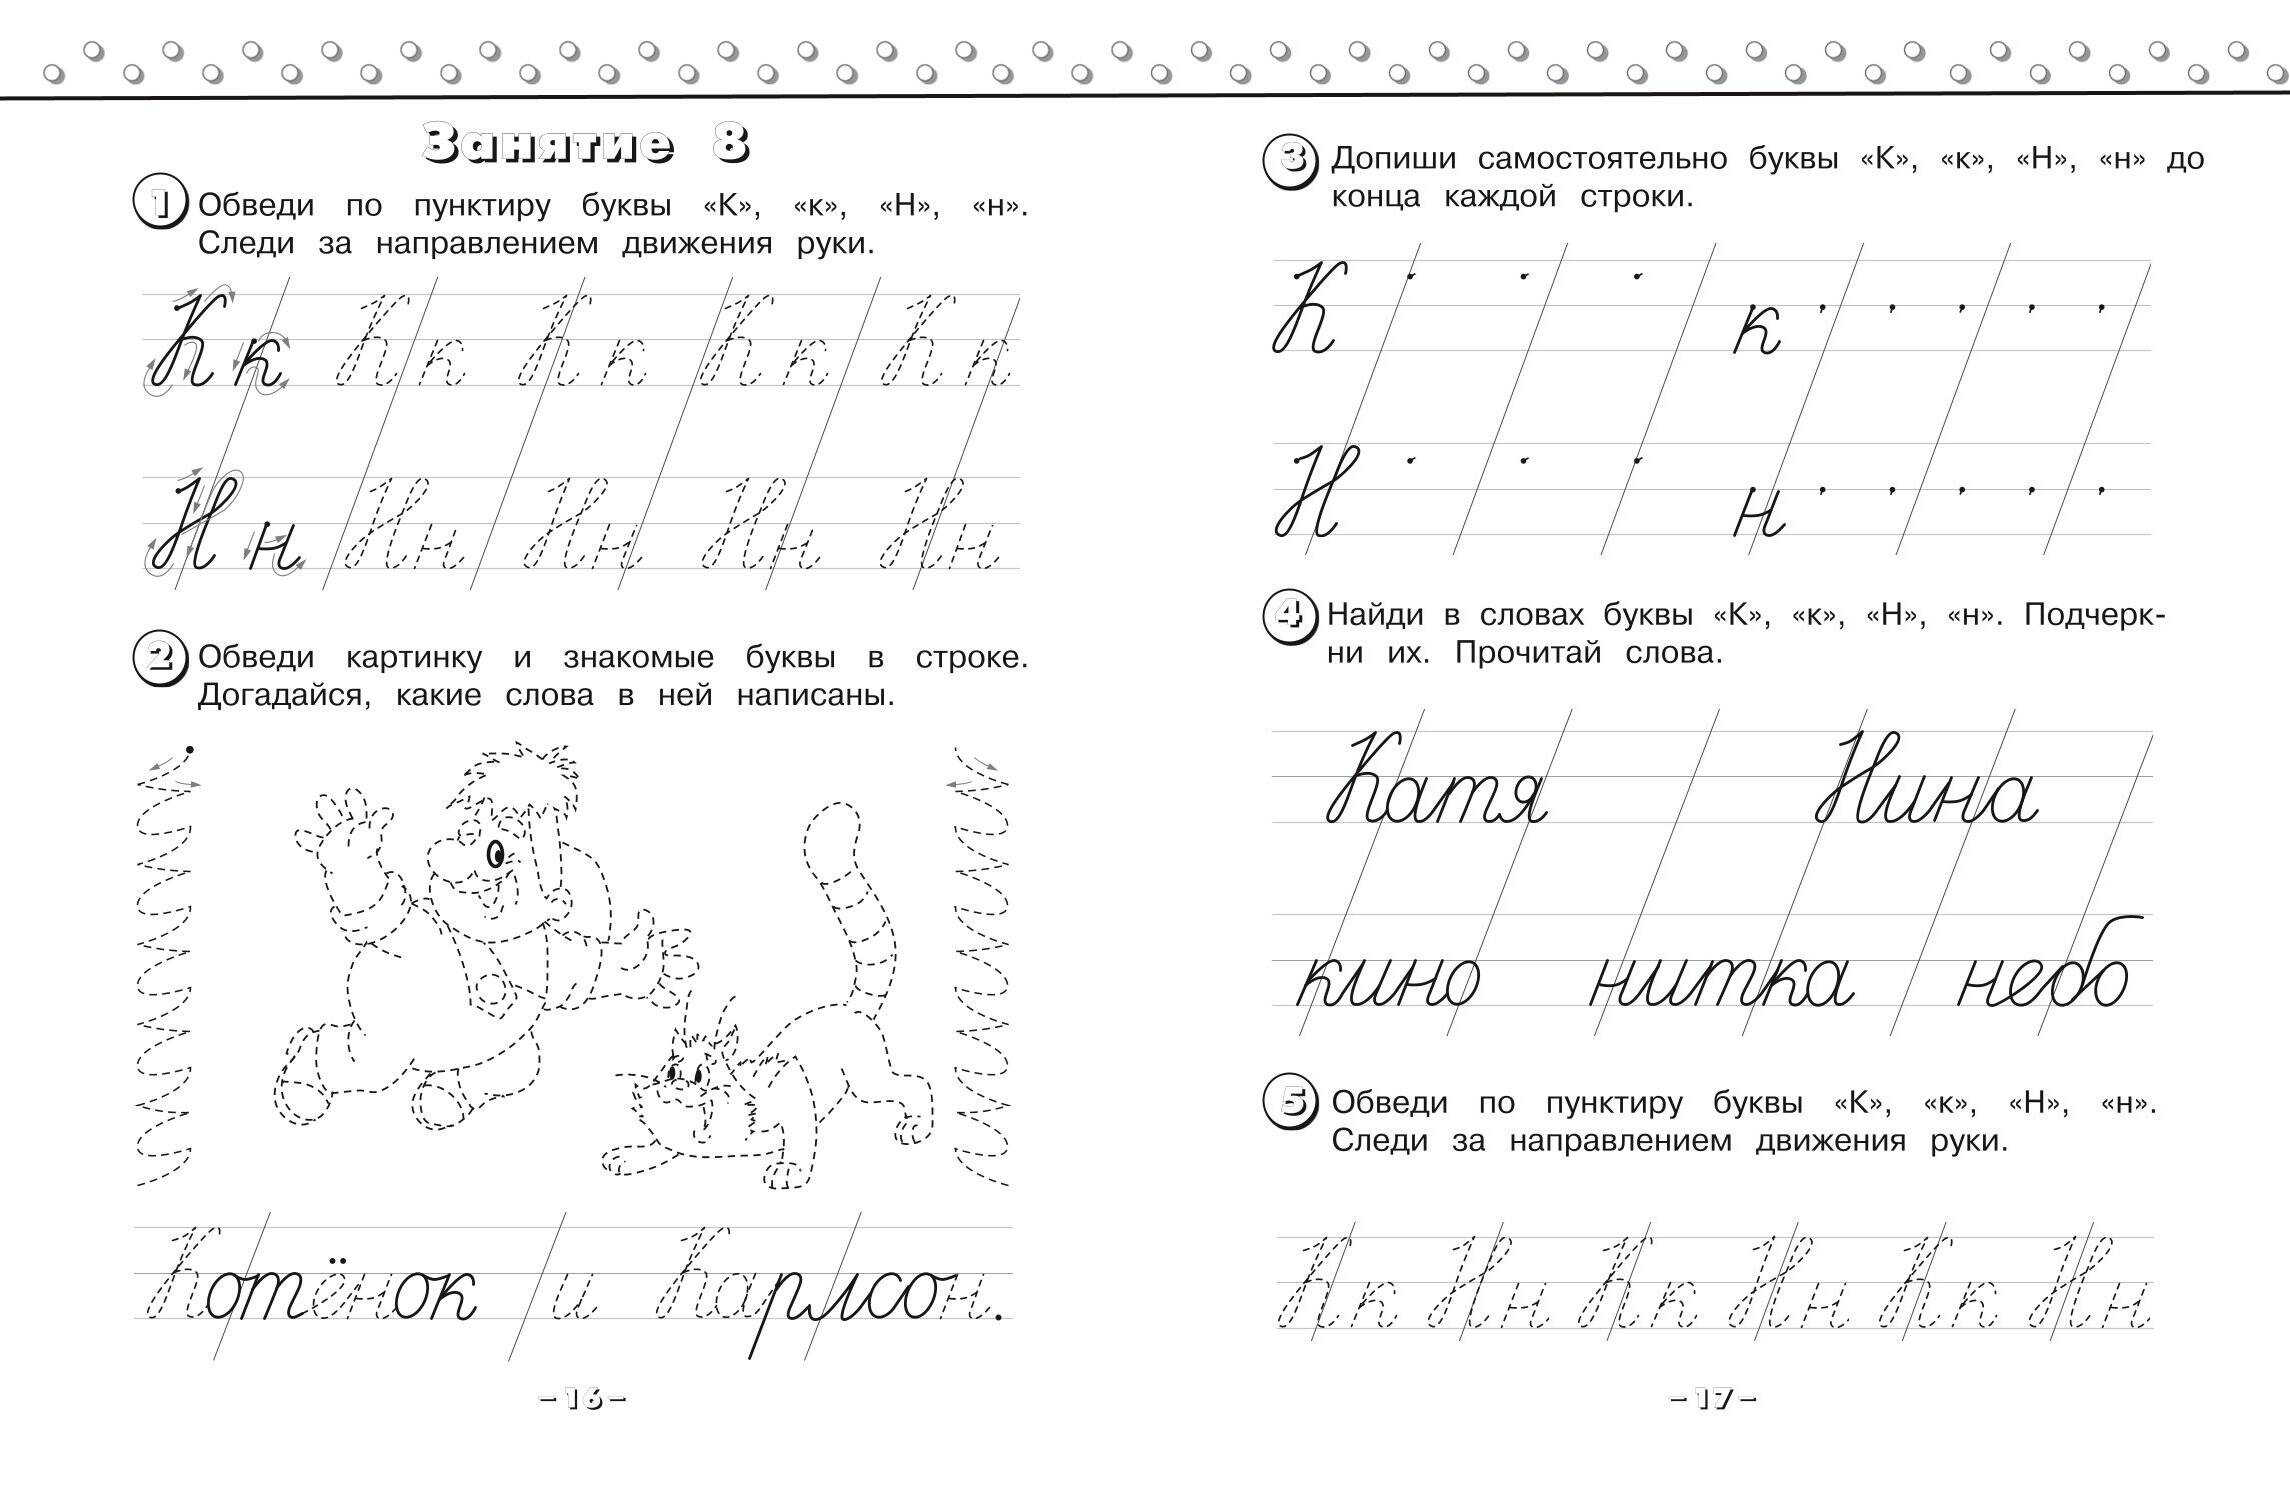 Занятие 8
1 Обведи по пунктиру буквы «К», «к», «Н», «н».
Следи за направлением движения руки.
К к К к К к К к К к
Н н Н н Н н Н н Н н
2 Обведи картинку и знакомые буквы в строке.
Догадайся, какие слова в ней написаны.
Котёнок и Карлсон.
–16–
3 Допиши самостоятельно буквы «К», «к», «Н», «н» до
конца каждой строки.
К к
Н н
4 Найди в словах буквы «К», «к», «Н», «н». Подчерк-
ни их. Прочитай слова.
Катя Нина
кино нитка небо
5 Обведи по пунктиру буквы «К», «к», «Н», «н».
Следи за направлением движения руки.
К к Н н К к Н н К к Н н
–17–